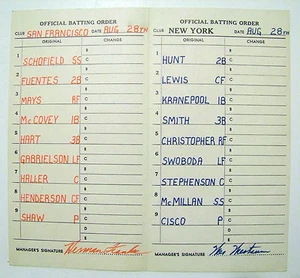 OFFICIAL BATTING ORDER
CLUB SAN FRANCISCO DATE AUG 28TH
ORIGINAL CHANGE
1 SCHOFIELD SS B C
2 FUENTES 2B B C
3 MAYS RF B C
4 McCOVEY 1B B C
5 HART 3B B C
6 GABRIELSON LF B C
7 HALLER C B C
8 HENDERSON CF B C
9 SHAW P B C
MANAGER'S SIGNATURE Herman Franks
OFFICIAL BATTING ORDER
CLUB NEW YORK DATE AUG 28TH
ORIGINAL CHANGE
1 HUNT 2B B C
2 LEWIS CF B C
3 KRANEPOOL 1B B C
4 SMITH 3B B C
5 CHRISTOPHER RF B C
6 SWOBODA LF B C
7 STEPHENSON C B C
8 McMILLAN SS B C
9 CISCO P B C
MANAGER'S SIGNATURE Wes Westrum